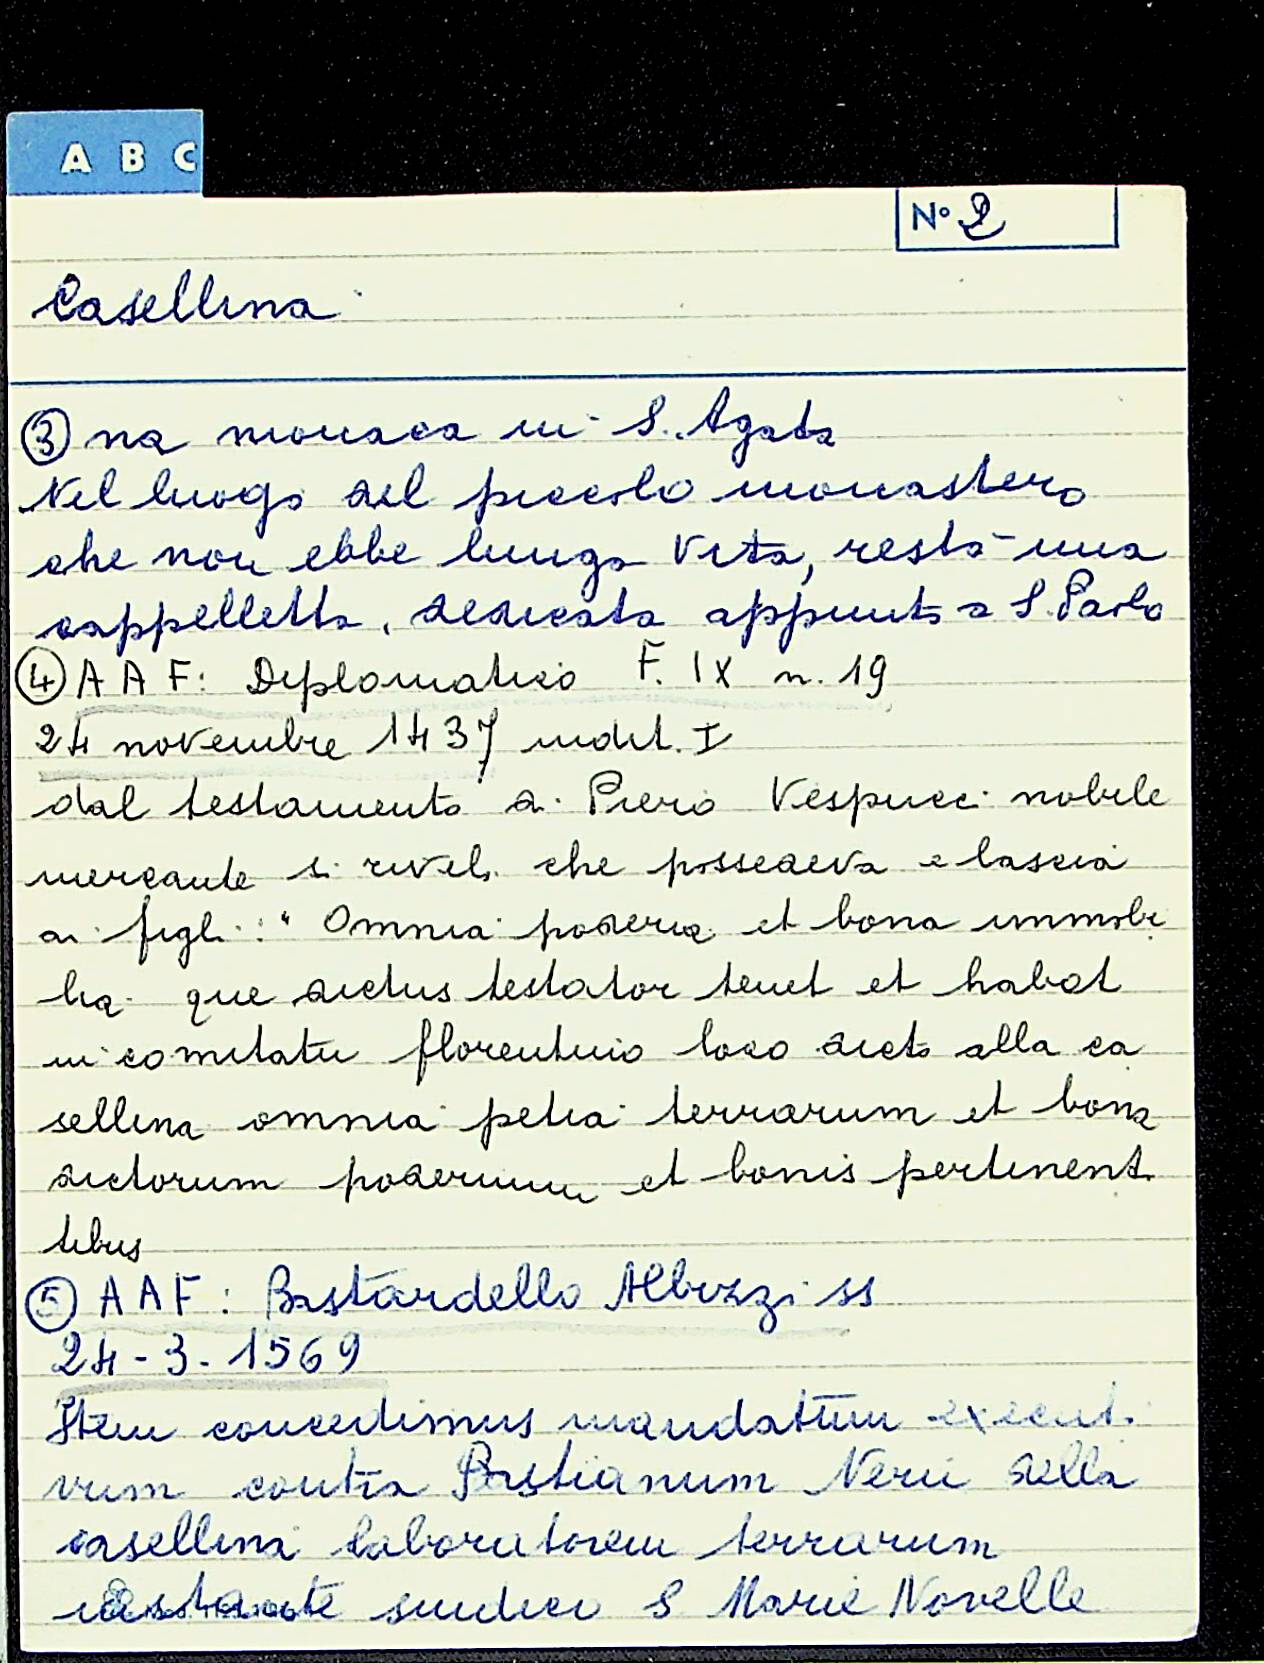 A B C
N° 2
Casellina
③ na monaca in S. Agata
Nel luogo del piccolo monastero
che non ebbe lunga vita, restà una
cappelletta, dedicata appunto a S. Paolo
④ A A F: Diplomatico F. IX n. 19
24 novembre 1437 indit. I
dal testamento di Piero Vespucci nobile
mercante si rivela che possedeva e lascia
ai figli: " Omnia poderia et bona immobi
lia que dictus testator tenet et habet
in comitatu florentino loco dicto alla ca
sellina omnia petia terrarum et bona
dictorum poderium et bonis pertinent
tibus
⑤ A A F: Bastardello Albizzi ss
24-3-1569
Item concedimus mandatum executi
vum contra Bastianum Nerii della
casellina laboratorem terrarum
instante sindico S Marie Novelle